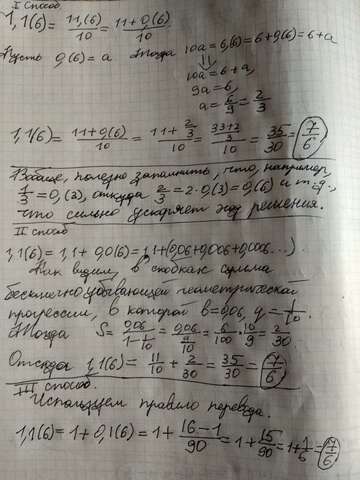 I способ
1,1(6) = 11,(6)/10 = (11+0,(6))/10
Пусть 0,(6) = a Тогда 10a = 6,(6) = 6+0,(6) = 6+a
⇓
10a = 6+a,
9a = 6,
a = 6/9 = 2/3
1,1(6) = (11+0,(6))/10 = (11+2/3)/10 = ((33+2)/3)/10 = 35/30 = 7/6
Вообще, полезно запомнить, что, например,
1/3 = 0,(3), откуда 2/3 = 2·0,(3) = 0,(6) и т.д.,
что сильно ускоряет ход решения.
II способ
1,1(6) = 1,1 + 0,0(6) = 1,1+(0,06+0,006+0,0006...)
Как видим, в скобках сумма
бесконечно убывающей геометрической
прогрессии, в которой b=0,06, q = 1/10.
Тогда S = 0,06/(1-1/10) = 0,06/(9/10) = 6/100 · 10/9 = 2/30
Отсюда 1,1(6) = 11/10 + 2/30 = 35/30 = 7/6
III способ.
Используем правило перевода.
1,1(6) = 1+0,1(6) = 1 + (16-1)/90 = 1 + 15/90 = 1+1/6 = 7/6